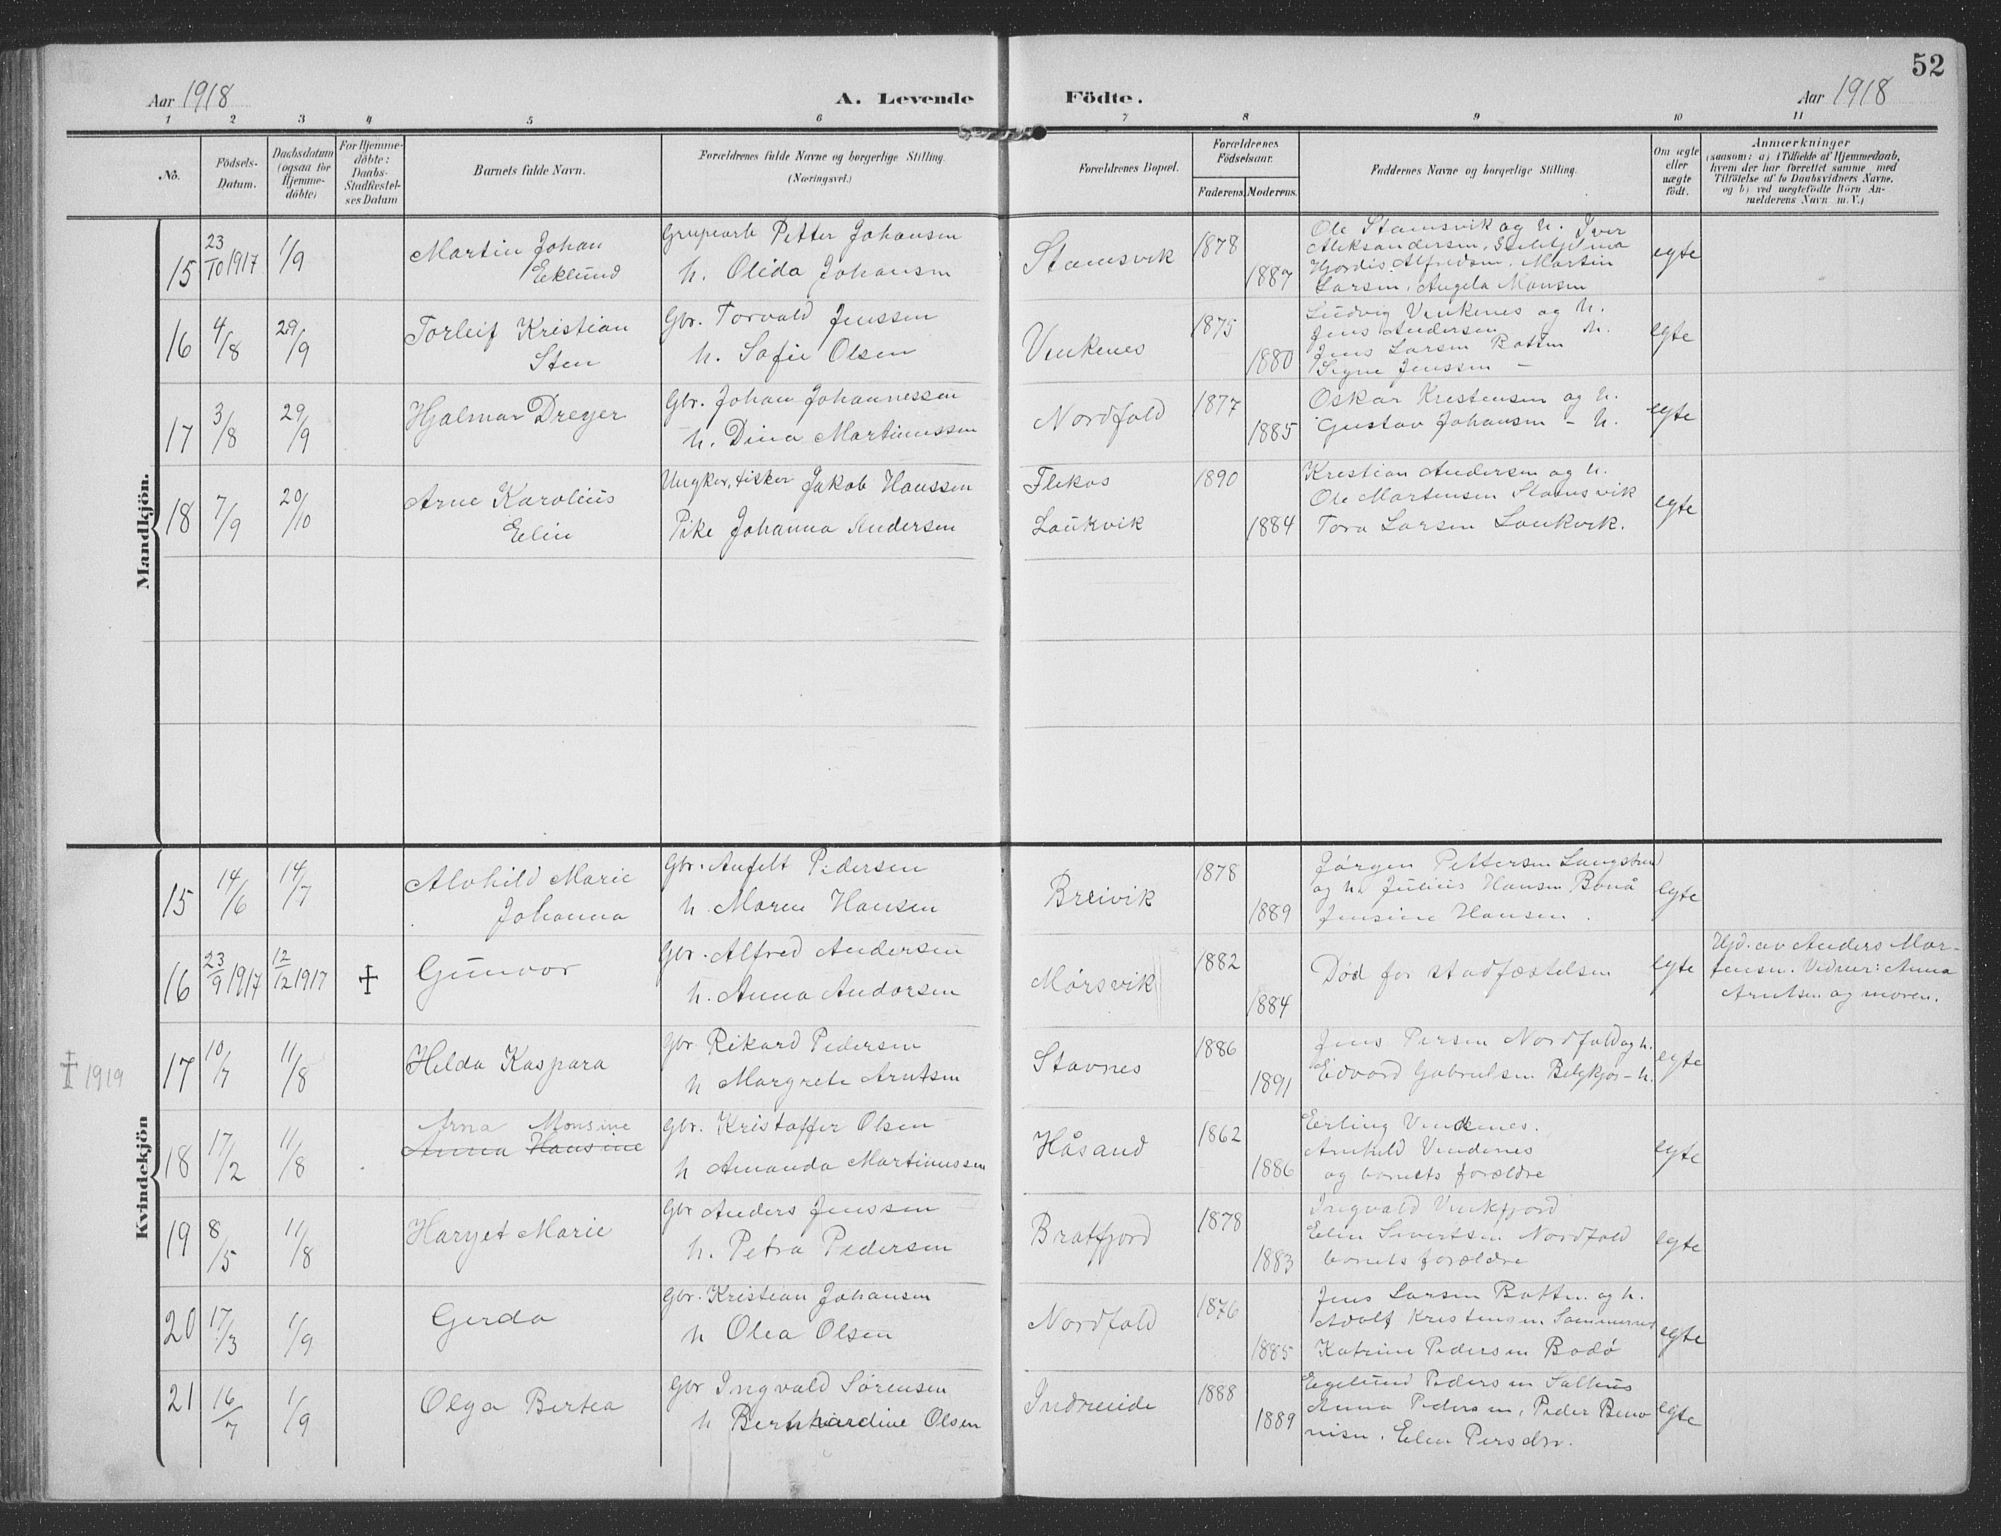 52
Aar 1918
A. Levende Födte.
Aar 1918
1 2 3 4 5 6 7 8 9 10 11
No.
Födsels-
Datum.
Daabsdatum
(ogsaa for
Hjemme-
döbte)
For Hjemme-
döbte:
Daabs-
Stadfæstel-
ses Datum
Barnets fulde Navn.
Forældrenes fulde Navne og borgerlige Stilling.
(Næringsvei.)
Forældrenes Bopæl.
Forældrenes
Födselsaar.
Faderens. Moderens.
Faddernes Navne og borgerlige Stilling.
Om ægte
eller
uægte
födt.
Anmærkninger
(saasom: a) i Tilfælde af Hjemmedaab,
hvem der har forrettet samme, med
Tilföielse af to Daabsvidners Navne,
og b) ved uægtefödte Börn An-
melderens Navn m. V.)
Mandkjön.
15 23/10 1917 1/9 Martin Johan
Eklund
Grubearb Petter Johansen
h. Olida Johansen
Stamsvik 1878
1887
Ole Stamsvik og h. Iver
Aleksandersen,
Hjordis Alfredsen, Martin
Larsen, Angela Monsen
egte
16 4/8 29/9 Torleif Kristian
Sten
Gbr. Torvald Jenssen
h. Sofie Olsen
Vinkenes 1875
1880
Ludvig Vinkenes og h.
Jens Andersen h.
Jens Larsen Botten
Signe Jenssen –
egte
17 3/8 29/9 Hjalmar Dreyer
Gbr. Johan Johannessen
h. Dina Martinussen
Nordfold 1877
1885
Oskar Kristensen og h.
Gustav Johansen – h.
egte
18 7/9 20/10 Arne Karolius
Elin
Ungkar, fisker Jakob Hanssen
Pike Johanna Andersen
Flekos
Laukvik
1890
1884
Kristian Andersen og h.
Ole Martensen Stamsvik
Tora Larsen Laukvik.
egte
Kvindekjön
15 14/6 14/7 Alvhild Marie
Johanna
Gbr. Anfelt Pedersen
h. Maren Hansen
Breivik 1878
1889
Jørgen Pettersen
og h. Julius Hansen Bonå
Jensine Hansen.
egte
16 23/9 1917 12/12 1917 ✝ Gunvor
Gbr. Alfred Andersen
h. Anna Andorsen
Mørsvik 1882
1884
Død før stadfæstelsen
egte
Hjd. av Anders Mor-
tensen. Vidner: Anna
Arntsen og moren.
✝ 1919
17 10/7 11/8 Helda Kaspara
Gbr Rikard Pedersen
h Margrete Arntsen
Stavnes 1886
1891
Jens Persen Nordfold og h.
Edvard Gabrielsen – h.
egte
18 17/2 11/8 Arna Monsine
Anna Hansine
Gbr. Kristoffer Olsen
h Amanda Martinussen
Håsand 1862
1886
Erling Vindenes.
Arnhild Vindenes
og barnets forældre
egte
19 8/5 11/8 Haryet Marie
Gbr Anders Jenssen
h. Petra Pedersen
Brattfjord 1878
1883
Ingvald Vinkfjord
Elen Sivertsen Nordfold
barnets forældre
egte
20 17/3 1/9 Gerda
Gbr. Kristian Johansen
h Olea Olsen
Nordfold 1876
1885
Jens Larsen Botten og h.
Adolf Kristensen
Katrine Pedersen Bodø
egte
21 16/7 1/9 Olga Bertea
Gbr Ingvald Sørensen
h Bernhardine Olsen
Indreeide 1888
1889
Eigelund Pedersen
Anna Pedersen, Peder Beno-
nisen. Elen Persdtr.
egte